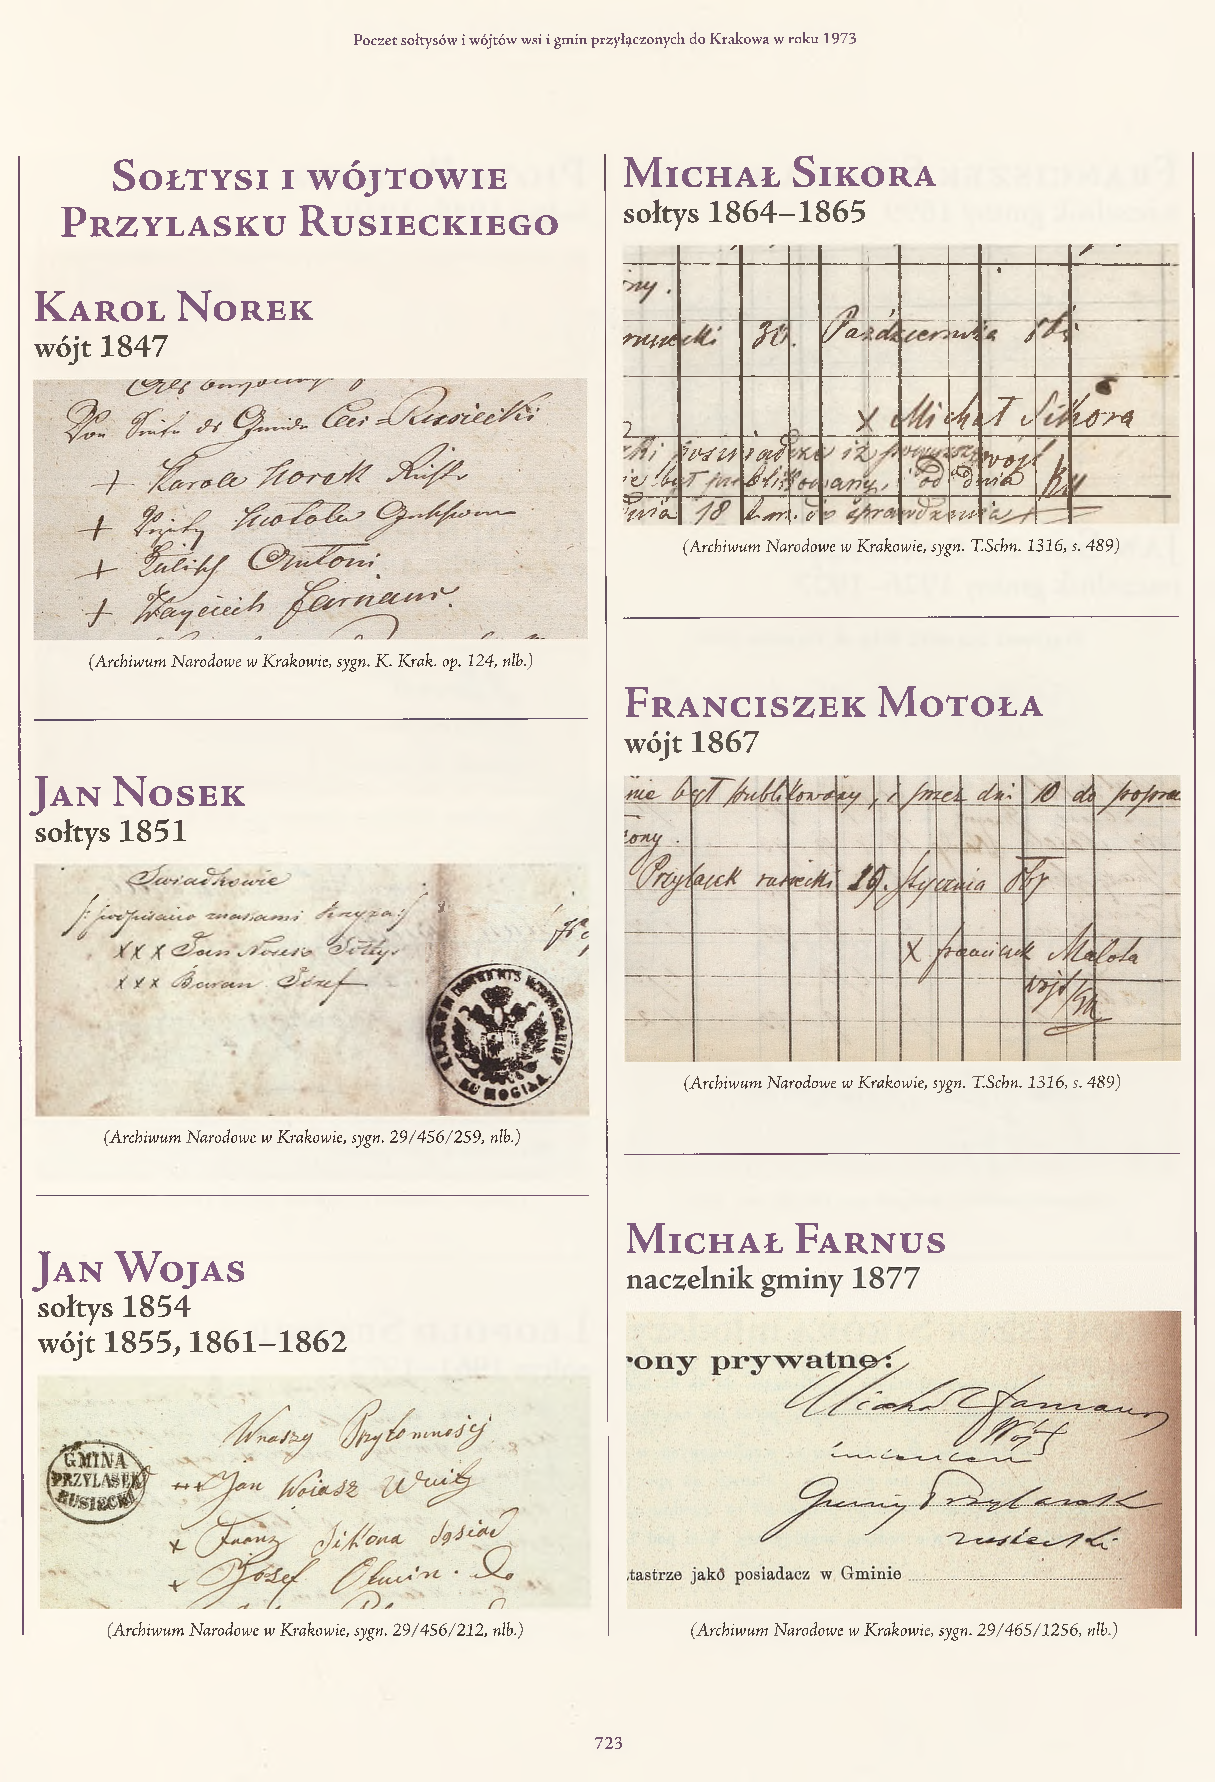 Poczet sołtysów i wójtów wsi i gmin przyłączonych do Krakowa w roku 1973
Sołtysi i wójtowie
Przylasku Rusieckiego
Karol Norek
wójt 1847
Von Seite der Gemeinde Les-Rusiecki
+ Karol Norek Richter
+ Motola
+ Antoni
+ Wayciech Farnaus.
(Archiwum Narodowe w Krakowie, sygn. K. Krak. op. 124, nlb.)
Jan Nosek
sołtys 1851
Swiadkowie
/: podpisano znakami krzyża :/
XXX Jan Nosek Sołtys
XXX Baran Józef
KU MOGIŁA
(Archiwum Narodowe w Krakowie, sygn. 29/456/259, nlb.)
Jan Wojas
sołtys 1854
wójt 1855, 1861–1862
Wnaszy Przytomnoscj
GMINA
PRZYLASEK
RUSIECKI
+++ Jan Woiasz Wuit
x Franz Sikona Sąsiad
x Józef
(Archiwum Narodowe w Krakowie, sygn. 29/456/212, nlb.)
Michał Sikora
sołtys 1864–1865
ny.
rusiecki 30. Października
x Michał Sikora
wójt
ki poswiadcza iż powyższy
ie był publikowany, od dnia
dnia 18 b.m. do sprawdzenia
(Archiwum Narodowe w Krakowie, sygn. T.Schn. 1316, s. 489)
Franciszek Motoła
wójt 1867
nie był publikowany, i przez dni 10 do popra
zony.
Przylasek rusiecki 29. Stycznia 867
X franciszek Matoła
wójt
(Archiwum Narodowe w Krakowie, sygn. T.Schn. 1316, s. 489)
Michał Farnus
naczelnik gminy 1877
rony prywatne:
Michał Farnaus
Wójt
imieniem
Gminy Przylasek
rusiecki
tastrze jako posiadacz w Gminie
(Archiwum Narodowe w Krakowie, sygn. 29/465/1256, nlb.)
723